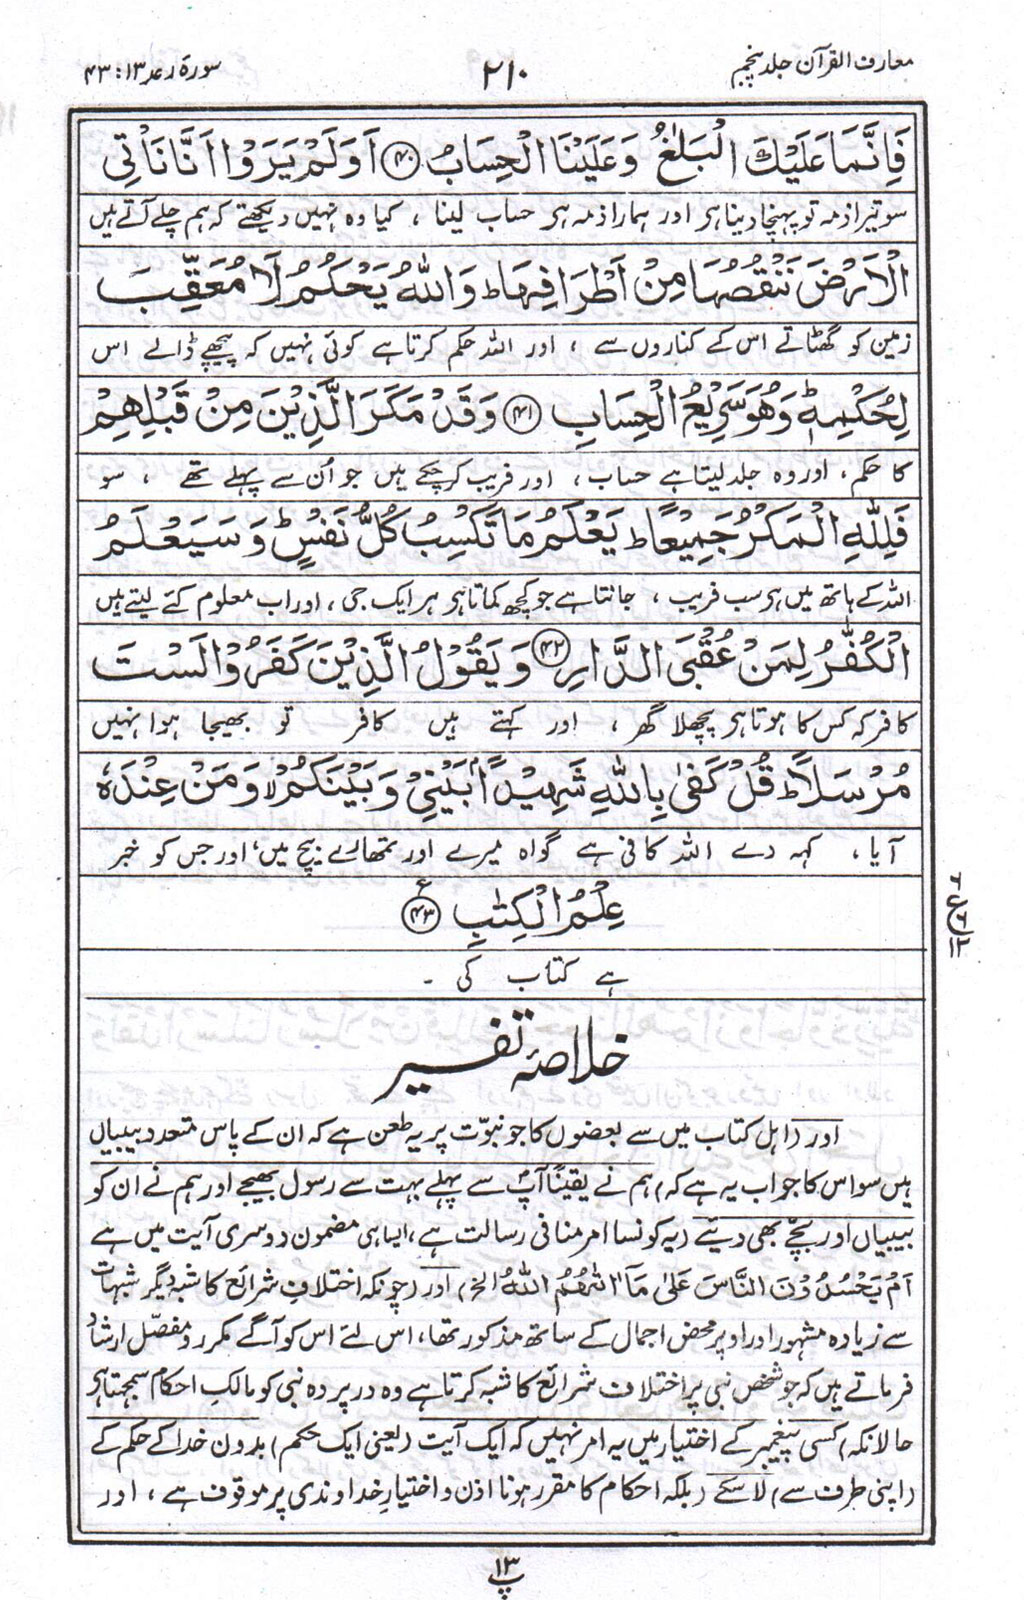 معارف القرآن جلد پنجم
۲۱۰
سورۂ رعد ۱۳: ۴۳
فَاِنَّمَا عَلَيْكَ الْبَلٰغُ وَعَلَيْنَا الْحِسَابُ ﴿۴۰﴾ اَوَلَمْ يَرَوْا اَنَّا نَاْتِي
سو تیرا ذمہ تو پہنچا دینا ہر اور ہمارا ذمہ ہر حساب لینا ، کیا وہ نہیں دیکھتے کہ ہم چلے آتے ہیں
الْاَرْضَ نَنْقُصُهَا مِنْ اَطْرَافِهَا ط وَاللّٰهُ يَحْكُمُ لَا مُعَقِّبَ
زمین کو گھٹاتے اس کے کناروں سے ، اور اللہ حکم کرتا ہے کوئی نہیں کہ پیچھے ڈالے اس
لِحُكْمِهٖ ط وَهُوَ سَرِيْعُ الْحِسَابِ ﴿۴۱﴾ وَقَدْ مَكَرَ الَّذِيْنَ مِنْ قَبْلِهِمْ
کا حکم ، اور وہ جلد لیتا ہے حساب ، اور فریب کرچکے ہیں جو اُن سے پہلے تھے ، سو
فَلِلّٰهِ الْمَكْرُ جَمِيْعًا ط يَعْلَمُ مَا تَكْسِبُ كُلُّ نَفْسٍ ط وَسَيَعْلَمُ
اللہ کے ہاتھ میں ہر سب فریب ، جانتا ہے جو کچھ کماتا ہر ہر ایک جی ، اور اب معلوم کئے لیتے ہیں
الْكُفّٰرُ لِمَنْ عُقْبَى الدَّارِ ﴿۴۲﴾ وَيَقُوْلُ الَّذِيْنَ كَفَرُوْا لَسْتَ
کافر کہ کس کا ہوتا ہر پچھلا گھر ، اور کہتے ہیں کافر تو بھیجا ہوا نہیں
مُرْسَلًا ط قُلْ كَفٰى بِاللّٰهِ شَهِيْدًۢا بَيْنِيْ وَبَيْنَكُمْ لا وَمَنْ عِنْدَهٗ
آیا ، کہہ دے اللہ کافی ہے گواہ میرے اور تمھارے بیچ میں ، اور جس کو خبر
عِلْمُ الْكِتٰبِ ﴿۴۳﴾ ع
ہے کتاب کی ۔
خلاصۂ تفسیر
اور (اہل کتاب میں سے بعضوں کا جو نبوّت پر یہ طعن ہے کہ ان کے پاس متعدد بیبیاں
ہیں سو اس کا جواب یہ ہے کہ) ہم نے یقیناً آپؐ سے پہلے بہت سے رسول بھیجے اور ہم نے ان کو
بیبیاں اور بچّے بھی دیئے (یہ کونسا امر منافی رسالت ہے ، ایسا ہی مضمون دوسری آیت میں ہے
اَمْ يَحْسُدُوْنَ النَّاسَ عَلٰى مَآ اٰتٰىهُمُ اللّٰهُ الخ) اور (چونکہ اختلافِ شرائع کا شبہ دیگر شبہات
سے زیادہ مشہور اور اوپر محض اجمال کے ساتھ مذکور تھا ، اس لئے اس کو آگے مکرر و مفصّل ارشاد
فرماتے ہیں کہ جو شخص نبی پر اختلاف شرائع کا شبہ کرتا ہے وہ در پردہ نبی کو مالکِ احکام سمجھتا ہر
حالانکہ) کسی پیغمبر کے اختیار میں یہ امر نہیں کہ ایک آیت (یعنی ایک حکم) بدون خدا کے حکم کے
(اپنی طرف سے) لا سکے (بلکہ احکام کا مقرر ہونا اذن و اختیارِ خداوندی پر موقوف ہے ، اور
پ ۱۳